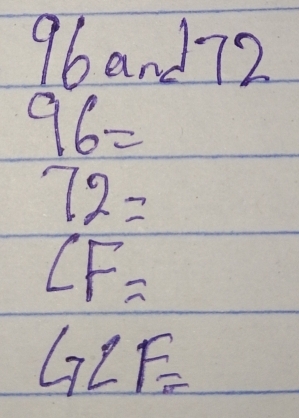 96 and 72
96=
72=
CF=
GCF=